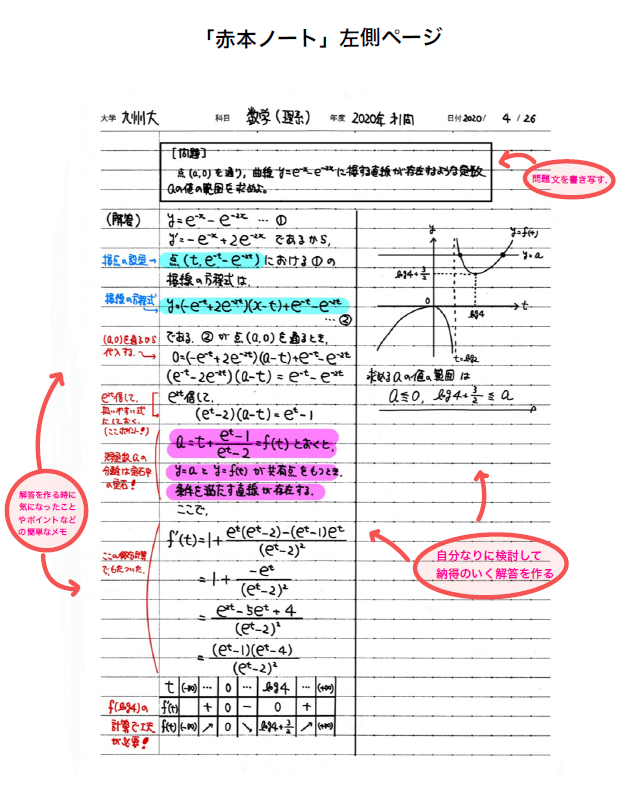 「赤本ノート」左側ページ
大学 九州大 科目 数学(理系) 年度 2020年 日付2020/ 4 / 26
[問題]
点(a,0)を通り, 曲線 y=e^{-x}-e^{-2x}に接する直線が存在するような定数
aの値の範囲を求めよ。
問題文を書き写す.
(解答) y=e^{-x}-e^{-2x} … ①
y'=-e^{-x}+2e^{-2x} であるから,
接点の設定→ 点(t, e^{-t}-e^{-2t})における①の
接線の方程式は.
接線の方程式→ y=(-e^{-t}+2e^{-2t})(x-t)+e^{-t}-e^{-2t}
… ②
である. ②が点(a,0)を通るとき,
(a,0)を通るから
代入する.→
0=(-e^{-t}+2e^{-2t})(a-t)+e^{-t}-e^{-2t}
(e^{-t}-2e^{-2t})(a-t)=e^{-t}-e^{-2t}
e^{2t}倍して,
扱いやすい式
にしておく.
(ここポイント!)
e^{2t}倍して.
(e^t-2)(a-t)=e^t-1
定数aの
分離は定石中
の定石!
a=t+\frac{e^t-1}{e^t-2}=f(t)とおくと,
y=aとy=f(t)が共有点をもつとき,
条件を満たす直線が存在する.
ここで,
解答を作る時に
気になったこと
やポイントなど
の簡単なメモ
ここの微分計算
でもたついた.
f'(t)=1+\frac{e^t(e^t-2)-(e^t-1)e^t}{(e^t-2)^2}
=1+\frac{-e^t}{(e^t-2)^2}
=\frac{e^{2t}-5e^t+4}{(e^t-2)^2}
=\frac{(e^t-1)(e^t-4)}{(e^t-2)^2}
t (-∞) … 0 … log4 … (+∞)
f'(t) + 0 - 0 +
f(t) (-∞) ↗ 0 ↘ log4+\frac{3}{2} ↗ (+∞)
f(log4)の
計算で工夫
が必要!
y
y=f(t)
y=a
log4+\frac{3}{2}
0
log4
t
t=log2
求めるaの値の範囲は
a≦0, log4+\frac{3}{2}≦a
自分なりに検討して
納得のいく解答を作る